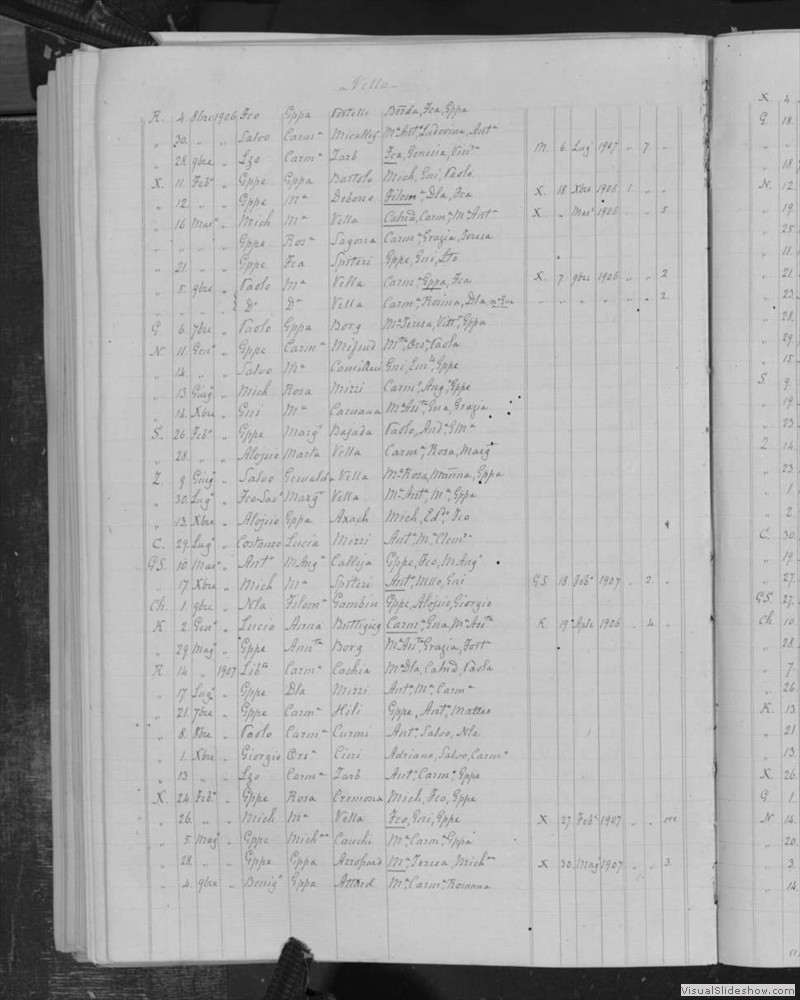 Vella
R. 4. 8bre 1906 Fco Gppa Portelli Borda, Fca, Gppa
" 30. " " Salvo Carmª Micallef Mª Antª Ludovina, Antª
" 28. 9bre " Lzo Carmª Zarb Fca, Genesia, Vinª M. 6. Lug° 1907 " 7. "
X. 11. Feb° " Gppe Gppa Bartolo Mich, Gni, Paolo
" 12. " " Gppe Mª Debono Filomª, Dla, Fca X. 18. Xbre 1906 1. " "
" 16 Mar° " Mich Mª Vella Calcid, Carmª, Mª Antª X " Mar° 1906 " " 5
" " " Gppe Rosª Sagona Carmª, Grazia, Teresa
" 21. " " Gppe Fca Spiteri Gppe, Gni,
" 5. 9bre " Paolo Mª Vella Carmª, Gppa, Fca X. 7. 9bre 1906 " " 2
" " " " D° D° Vella Carmª, Rosina, Dla, " " " " " " 2.
G 6. 7bre " Paolo Gppa Borg Mª Teresa, Vittª, Gppa
N. 11. Gen° " Gppe Carmª Mifsud Orsª, Paola
" 14. " " Salvo Mª Camilleri Gni, Gppe
" 13 Giug° " Mich Rosa Mizzi Carmª, Angª, Gppe
" 14. Xbre " Gni Mª Caruana Gna, Grazia
S. 26. Feb° " Gppe Margª Bajada Paolo, Andª, GMª
" 28. " " Aloisio Marta Vella Carmª, Rosa, Margª
Z 9. Giug° " Salvo Gewalda Vella Mª Rosa, Marina, Gppa
" 30. Lug° " Fco-Sav° Margª Vella Mª Antª, Mª, Gppa
" 13. Xbre " Aloisio Gppa Axach Mich, Ed°, Fco
C. 29. Lug° " Costanzo Lucia Mizzi Antª, Mª, Clemª
GS. 10 Mar° " Antª MAngª Calleja Gppe, Fco, MAngª
" 17. Xbre " Mich Mª Spiteri Antª, Mllo, Gni GS 18. Feb° 1907 " 2. "
Ch. 1. 9bre " Nla Filomª Gambin Gppe, Aloisio, Giorgio
K 2. Gen° " Lucio Anna Buttigieg Carmª, Gna, K 19 Aple 1906 " 4. "
" 29. Mag° " Gppe Annᵗᵃ Borg Grazia, Fortª
R 14. " 1907 Libᵗᵒ Carmª Cachia Mª Dla, Calcid, Paola
" 17. Lug° " Gppe Dla Mizzi Antª, Mª, Carmª
" 21. 7bre " Gppe Carmª Hili Gppe, Antª, Matteo
" 8. 8bre " Paolo Carmª Curmi Antª, Salvo, Nla
" 1. Xbre " Giorgio Orsª Cini Adriano, Salvo, Carmª
" 13 " " Lzo Carmª Zarb Antª, Carmª, Gppe
X. 24. Feb° " Gppe Rosa Cremona Mich, Fco, Gppe
" 26. " " Mich Mª Vella Fco, Gni, Gppe X 27 Feb° 1907 " " ore
" 5. Mag° " Gppe Michⁿᵃ Cauchi Mª, Carmª, Gppa
" 28. " " Gppe Gppa Azzopard Mª, Teresa, Michⁿᵃ X 30. Mag° 1907 " " 3.
" 4. 9bre " Benig° Gppa Attard Mª, Carmª, Rosanna
X 4
G. 18.
" 18
N. 12
" 19.
" 25.
" 11.
" 21.
" 23.
" 28.
" 29.
" 15.
S. 9.
" 19.
" 23
Z 14.
" 23.
" 1.
" 2.
C. 30.
" 19.
" 27.
GS. 27.
Ch. 10.
" 28.
" 7.
" 26.
K. 13.
" 21
" 13.
X. 26.
G 1.
N 14.
" 20.
" 3.
" 14.
VisualSlideshow.com